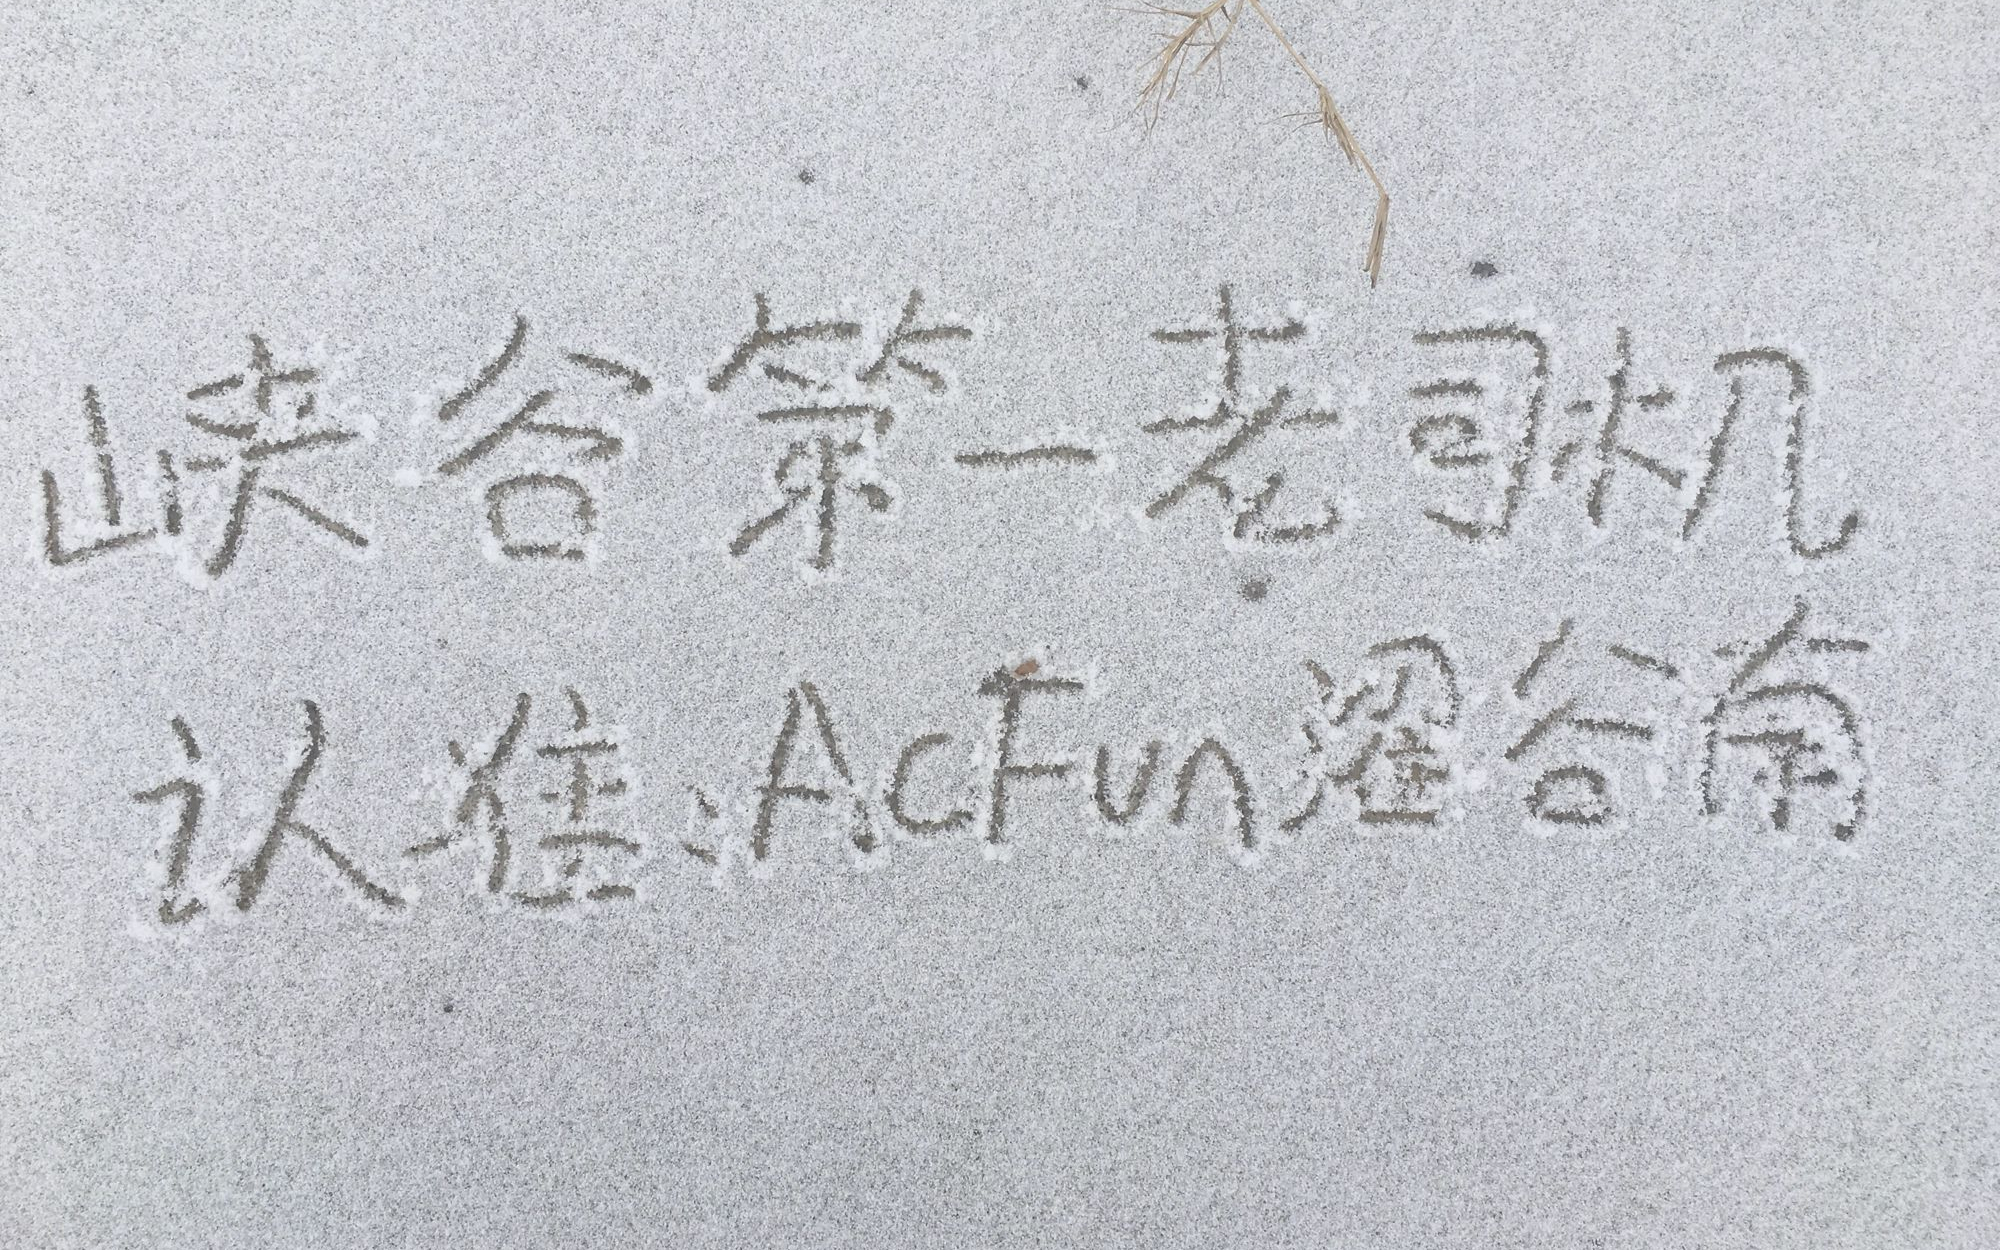 峡谷第一老司机
认准:AcFun涩谷南